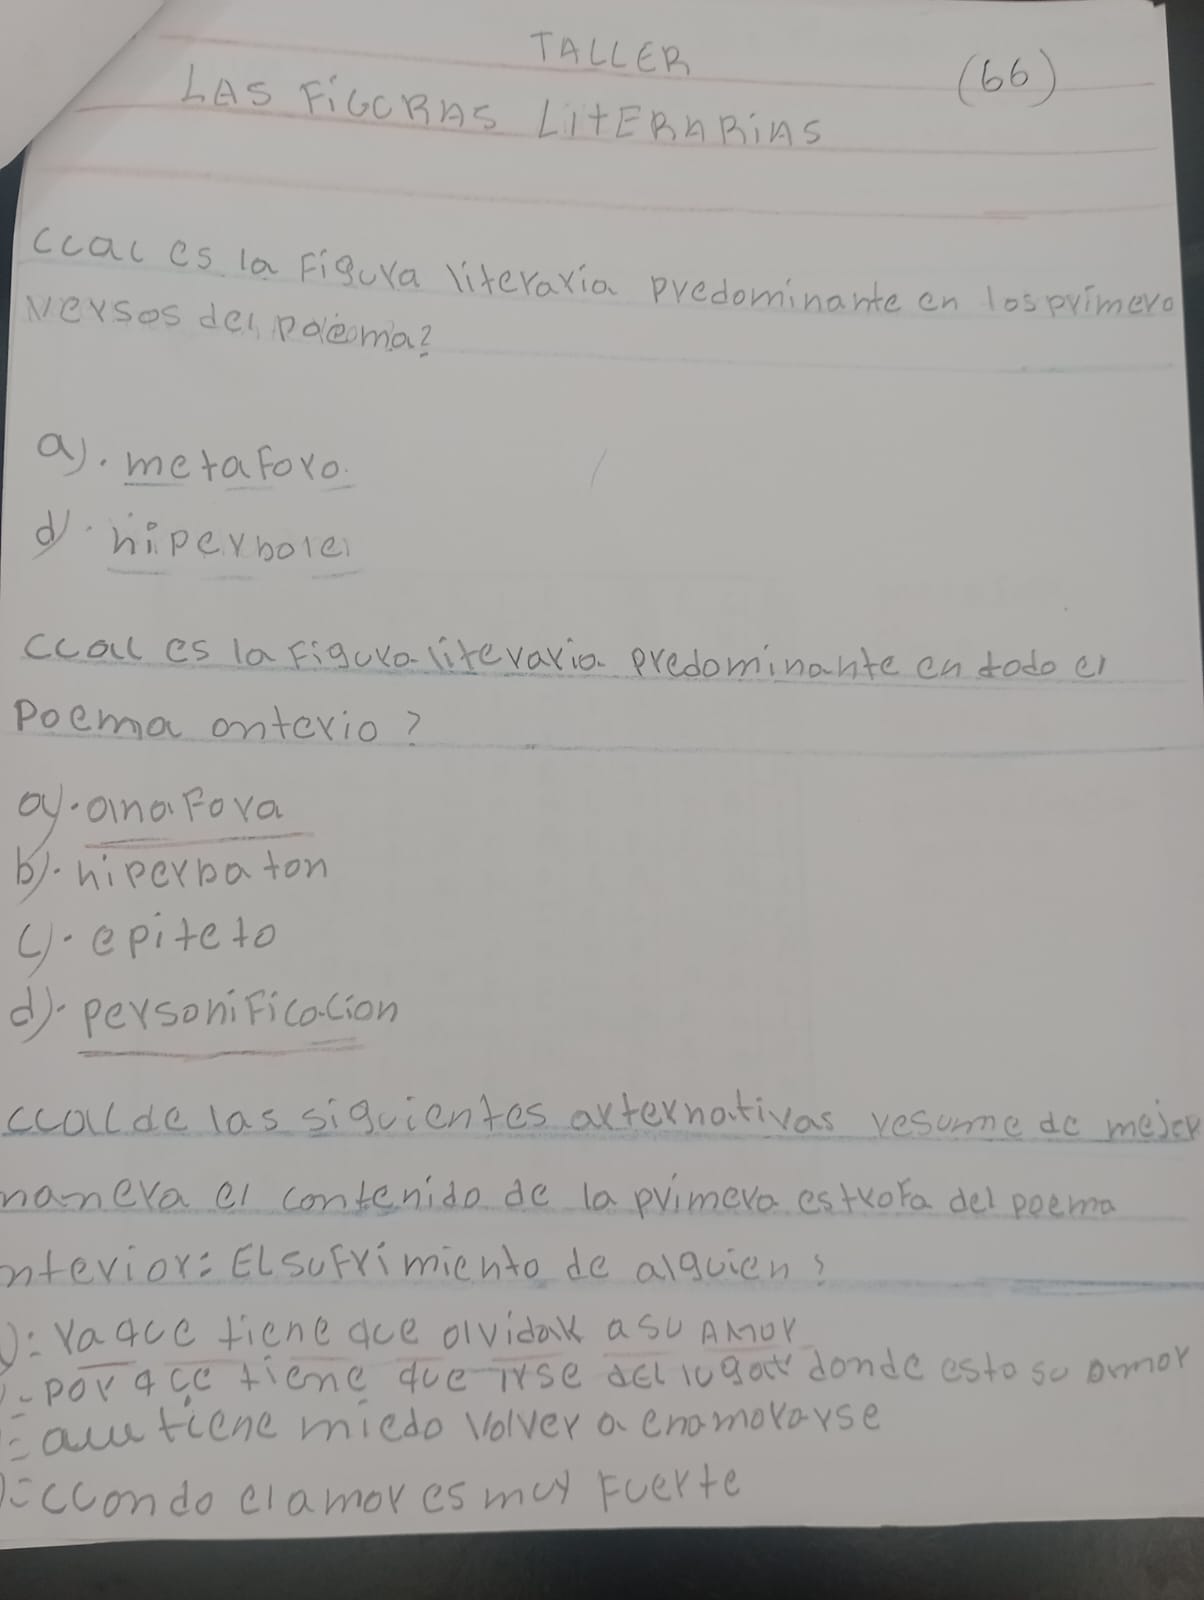 TALLER
(66)
LAS FiGCRAS LitERARiAS
CCAL es la Figura literaria predominante en los primero
versos del poema?
a). metaforo.
d). hiperbole
CCAL es la Figura literaria predominante en todo el
poema anterio?
a). anafora
b). hiperbaton
c). epiteto
d). personificacion
CCAL de las siguientes arternativas resume de mejor
manera el contenido de la primera estrofa del poema
nterior: EL sufrimiento de alguien?
): Ya que tiene que olvidar a su AMOR
- por que tiene que irse del lugar donde esta so amor
tiene miedo volver a enamorarse
): CCondo el amor es muy fuerte